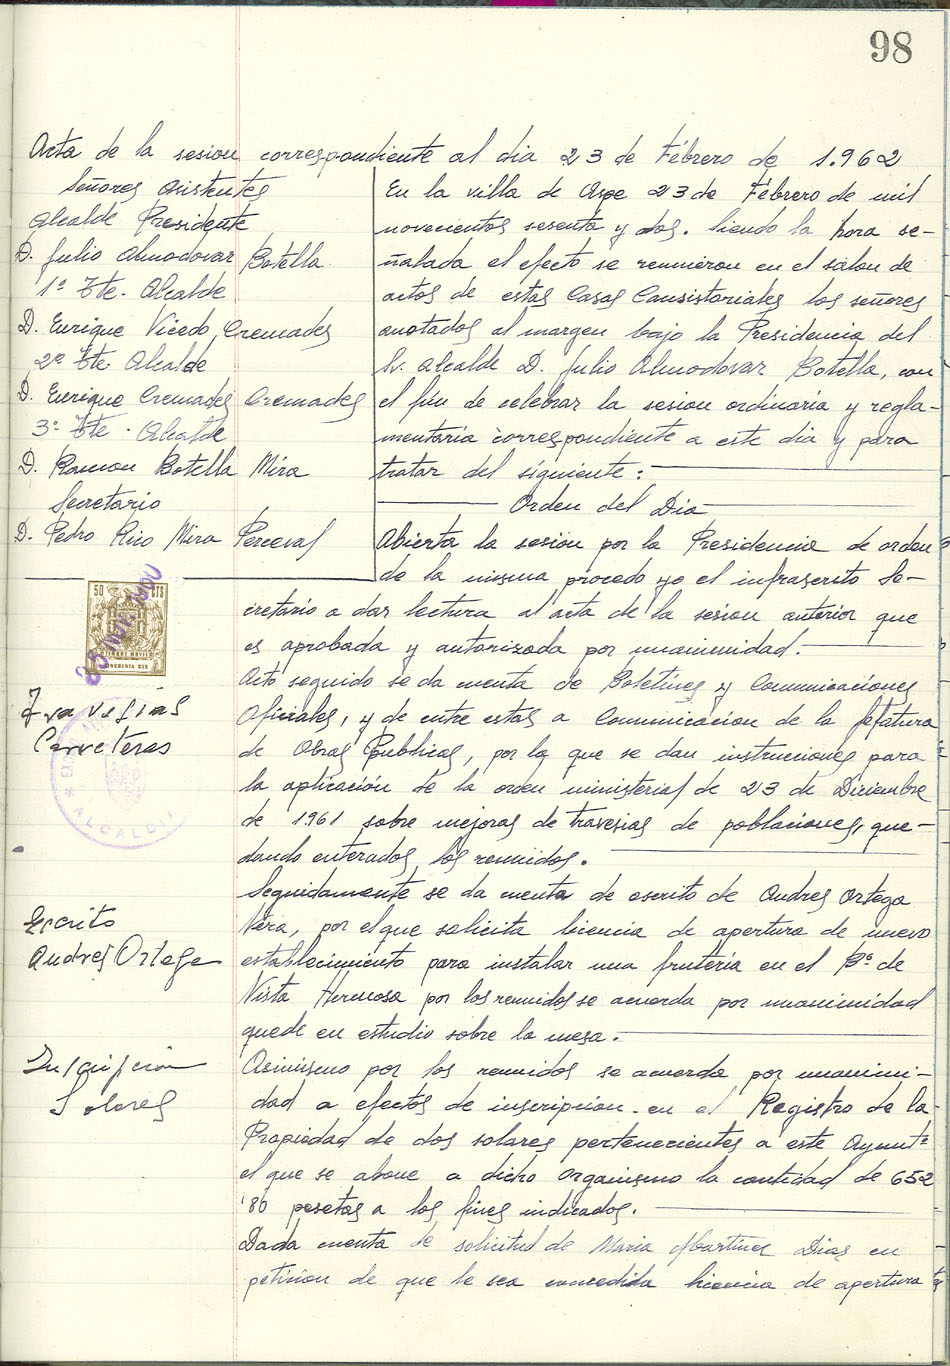 98
Acta de la sesion correspondiente al dia 23 de Febrero de 1.962
Señores Asistentes
Alcalde Presidente
D. Julio Almodovar Botella
1º Tte. Alcalde
D. Enrique Vicedo Cremades
2º Tte Alcalde
D. Enrique Cremades Cremades
3º Tte. Alcalde
D. Ramon Botella Mira
Secretario
D. Pedro Rico Mira Perceval
En la villa de Aspe 23 de Febrero de mil
novecientos sesenta y dos. Siendo la hora se-
ñalada el efecto se reunieron en el salon de
actos de estas Casas Consistoriales los señores
anotados al margen bajo la Presidencia del
Sr. Alcalde D. Julio Almodovar Botella, con
el fin de celebrar la sesion ordinaria y regla-
mentaria correspondiente a este dia y para
tratar del siguiente:
Orden del Dia
Abierta la sesion por la Presidencia de orden
de la misma procedo yo el infrascrito Se-
cretario a dar lectura al acta de la sesion anterior que
es aprobada y autorizada por unanimidad.
50 CTS
Travesias
Carreteras
ALCALDIA
Acto seguido se da cuenta de Boletines y Comunicaciones
Oficiales, y de entre estas a Comunicacion de la Jefatura
de Obras Publicas, por la que se dan instrucciones para
la aplicación de la orden ministerial de 23 de Diciembre
de 1961 sobre mejoras de travesias de poblaciones, que-
dando enterados los reunidos.
Escrito
Andres Ortega
Seguidamente se da cuenta de escrito de Andres Ortega
Vera, por el que solicita licencia de apertura de nuevo
establecimiento para instalar una fruteria en el Bº de
Vista Hermosa por los reunidos se acuerda por unanimidad
quede en estudio sobre la mesa.
Inscripcion
Solares
Asimismo por los reunidos se acuerda por unanimi-
dad a efectos de inscripcion en el Registro de la
Propiedad de dos solares pertenecientes a este Ayuntº
el que se abone a dicho organismo la cantidad de 652
'80 pesetas a los fines indicados.
Dada cuenta de solicitud de Maria Martinez Dias en
peticion de que le sea concedida licencia de apertura